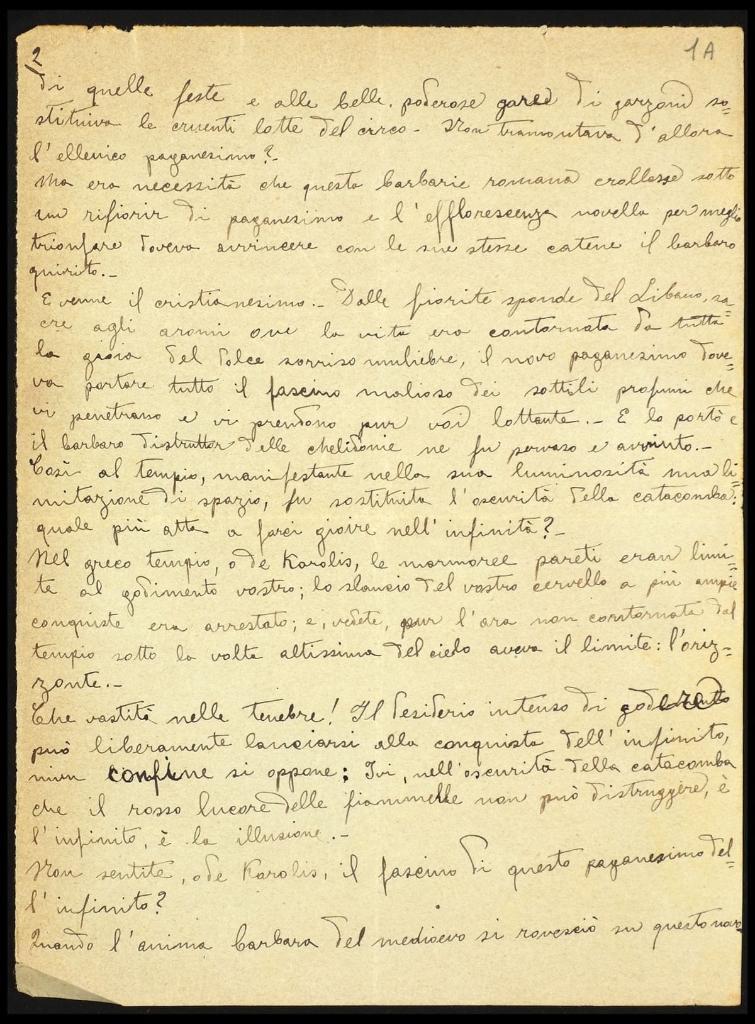 2
1A
di quelle feste e alle belle, poderose gare di garzoni so=
stituiva le cruenti lotte del circo - Non tramontava d'allora
l'ellenico paganesimo? -
Ma era necessità che questa barbarie romana crollasse sotto
un rifiorir di paganesimo e l'efflorescenza novella per meglio
trionfare doveva avvincere con le sue stesse catene il barbaro
quirito. -
E venne il cristianesimo. - Dalle fiorite sponde del Libano, sa=
cre agli aromi ove la vita era contornata da tutta
la gioia del dolce sorriso muliebre, il novo paganesimo dove=
va portare tutto il fascino malioso dei sottili profumi che
vi penetrano e vi prendono pur voi lottante. - E lo portò e
il barbaro distruttor delle chelidonie ne fu pervaso e avvinto. -
Così al tempio, manifestante nella sua luminosità una li=
mitazione di spazio, fu sostituita l'oscurità della catacomba:
quale più atta a farci gioire nell'infinità? -
Nel greco tempio, o de Karolis, le marmoree pareti eran limi=
te al godimento vostro; lo slancio del vostro cervello a più ampie
conquiste era arrestato; e, vedete, pur l'ara non contornata dal
tempio sotto la volta altissima del cielo aveva il limite: l'oriz=
zonte. -
Che vastità nelle tenebre! Il desiderio intenso di godere
può liberamente lanciarsi alla conquista dell'infinito,
niun confine si oppone: Ivi, nell'oscurità della catacomba
che il rosso lucore delle fiammelle non può distruggere, è
l'infinito, è la illusione. -
Non sentite, o de Karolis, il fascino di questo paganesimo del=
l'infinito?
Quando l'anima barbara del medioevo si rovesciò su questo novo